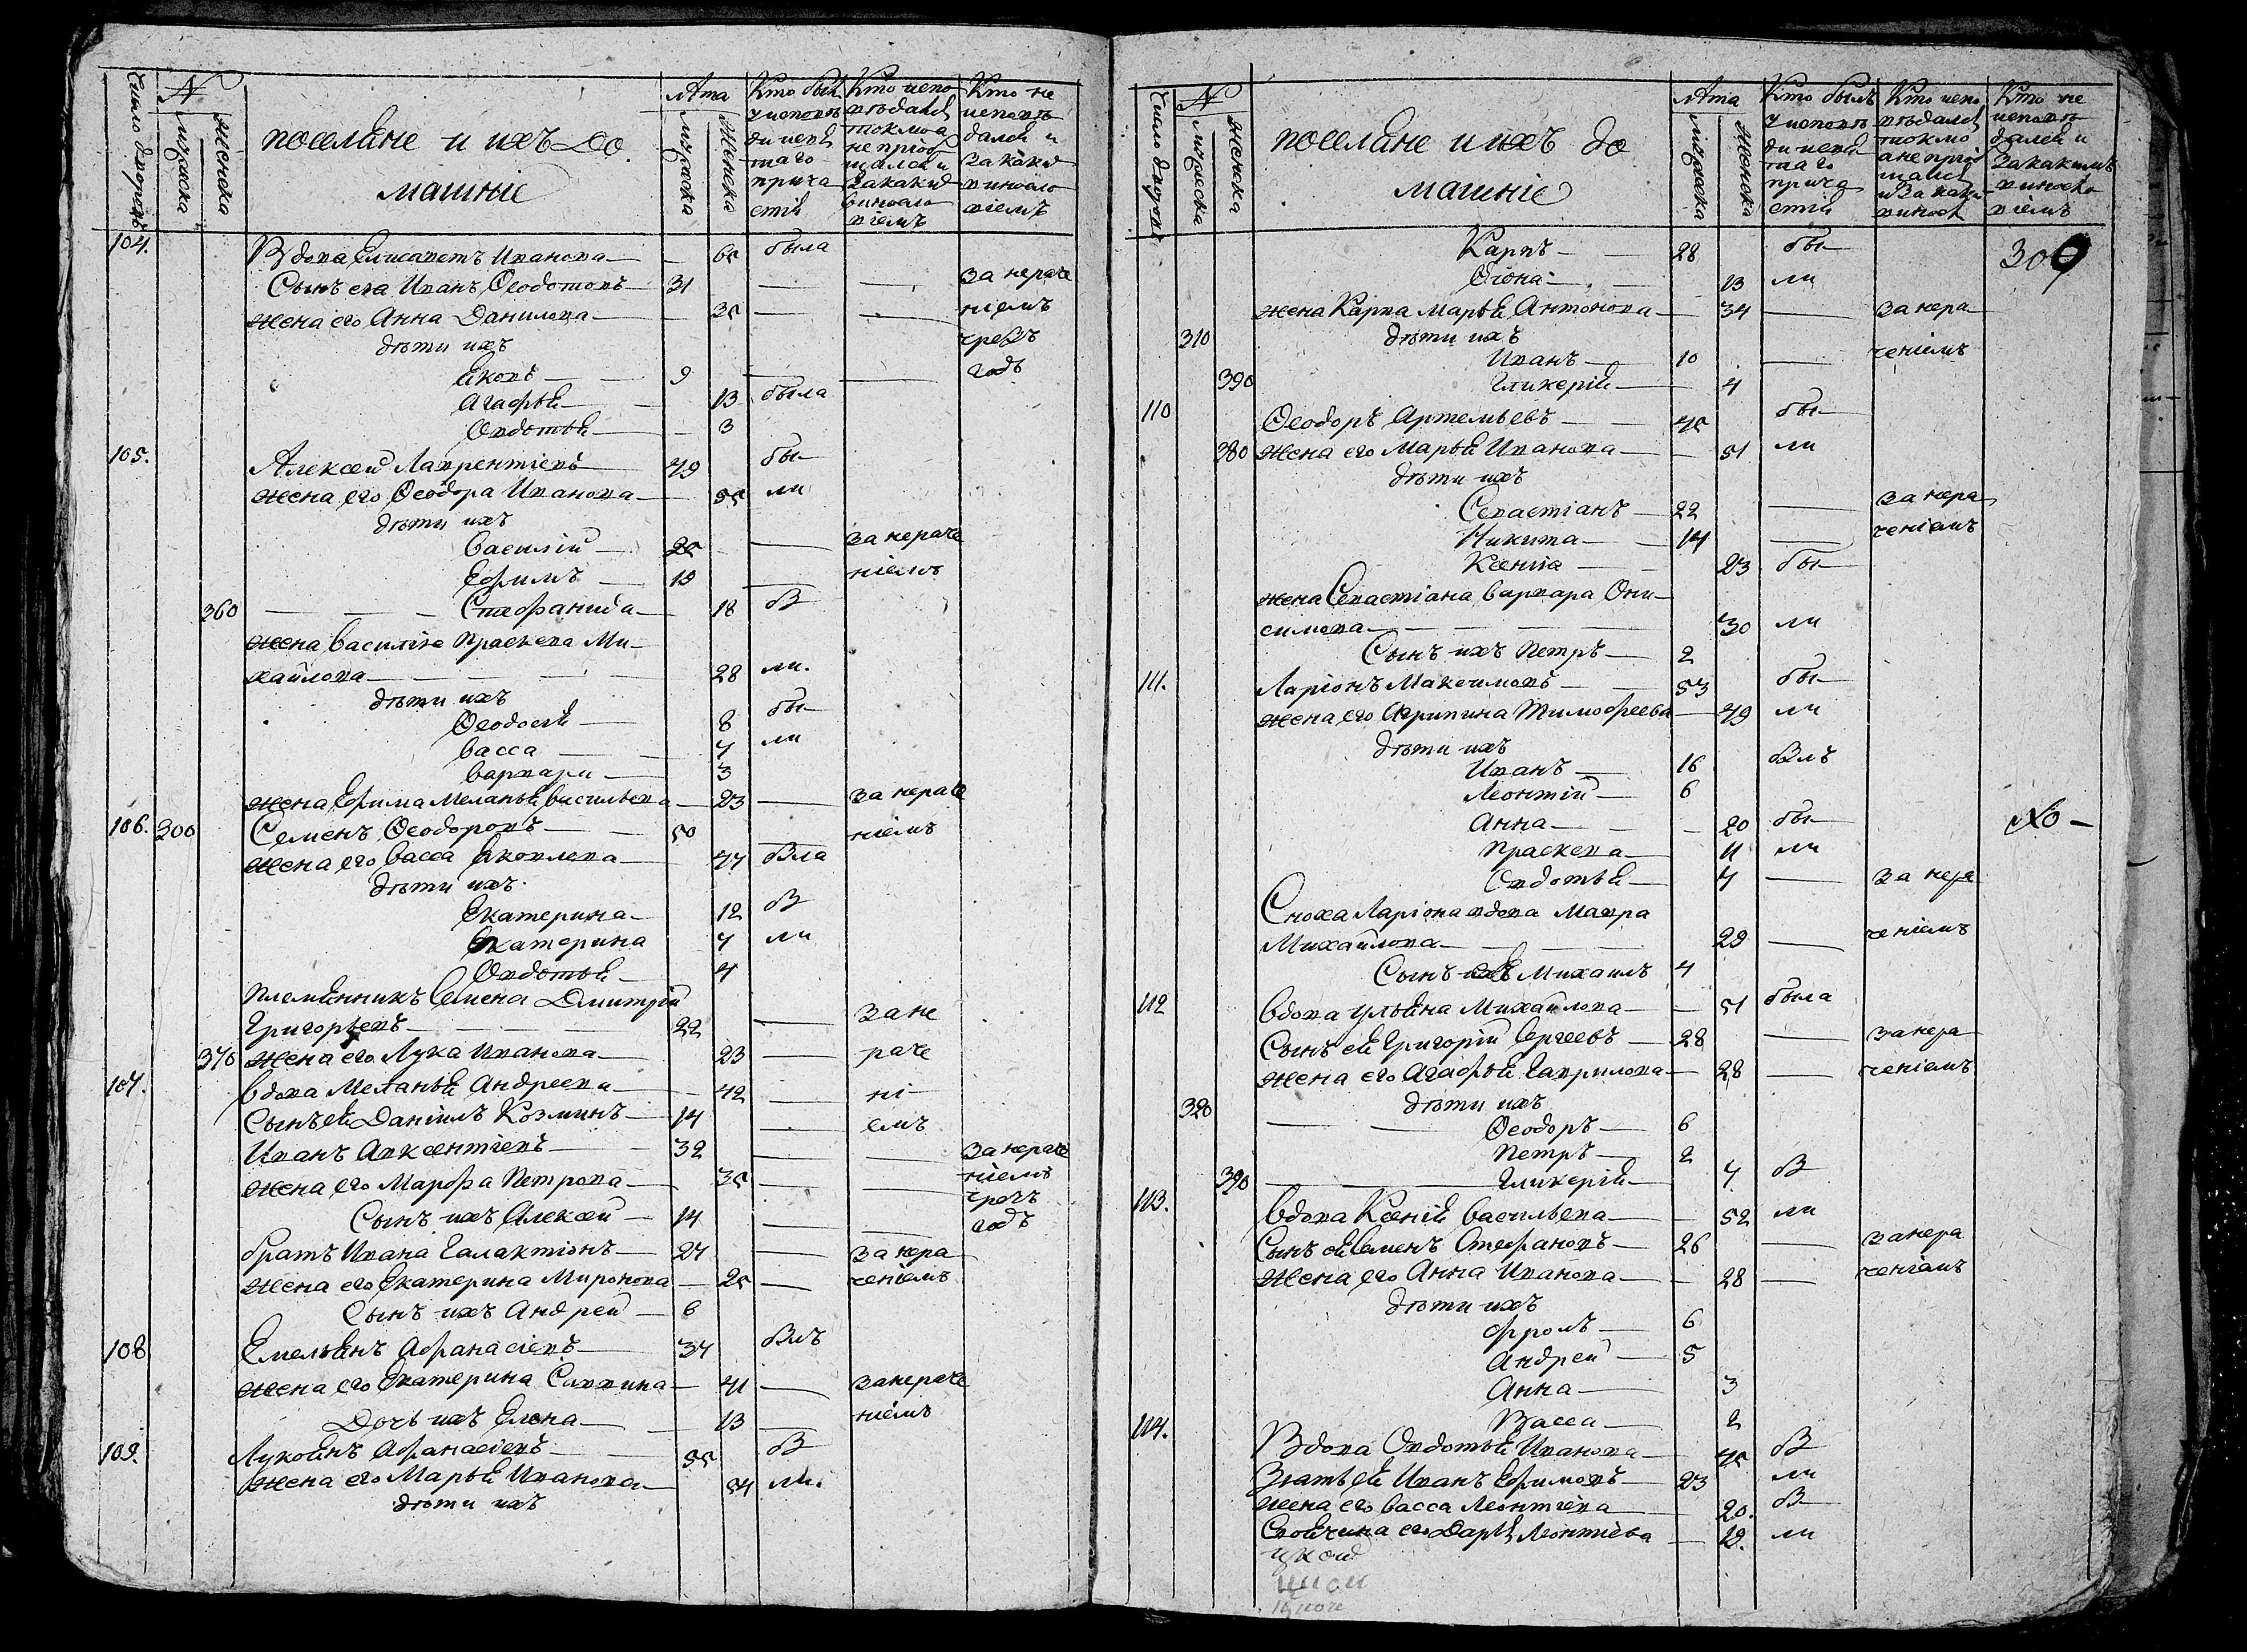 Число дворовъ
N
мужеска
женска
поселяне и ихъ до
машніе
Лта
мужеска
женска
Кто былъ
у исповѣ
ди и свя
таго
прича
стія
Кто испо
вѣдался
токмо а
не приоб
щался и
за какимъ
виносло
віемъ
Кто не
исповѣ
дался и
за какимъ
виносло
віемъ
104. Вдова Елисаветъ Иванова — 65 была
Сынъ ея Иванъ Ѳеодотовъ 31 — — за нераче
жена его Анна Данилова 35 — — ніемъ
дѣти ихъ чрезъ
Яковъ 9 — — годъ
Агафья 13 была
Овдотья 3
105. Алексѣй Лаврентіевъ 49 бы
жена его Ѳеодора Иванова 55 ли
дѣти ихъ
Василій 25 — за нераче
Ефимъ 19 — ніемъ
360 Стефанида 18 бы
жена Василія Праскева Ми
хайлова 28 ли.
дѣти ихъ
Ѳеодосья 8 бы
Васса 7 ли
Варвара 3
жена Ефима Меланья Васильева 23 — за нераче
106. 300 Семенъ Ѳеодоровъ 50 — ніемъ
жена его Васса Яковлева 47 была
дѣти ихъ
Екатерина 12 бы
Екатерина 7 ли
Овдотья 4
Племянникъ Семена Дмитрій
Григорьевъ 22 — за не
370 жена его Лука Иванова 23 — раче
107. Вдова Меланья Андреева 42 — ні
Сынъ ея Даніилъ Козминъ 14 — емъ
Иванъ Авксентіевъ 32 — — за нераче
жена его Марфа Петрова 35 — — ніемъ
чрезъ
Сынъ ихъ Алексѣй 14 — — годъ
братъ Ивана Галактіонъ 27 — за нера
жена его Екатерина Миронова 25 — ченіемъ
Сынъ ихъ Андрей 6
108 Емельянъ Афанасіевъ 37 былъ
жена его Екатерина Саввина 41 — за нераче
Дочь ихъ Елена 13 — ніемъ
109. Лукоянъ Афанасіевъ 55 бы
жена его Марья Иванова 54 ли.
дѣти ихъ
Число дворовъ
N
мужеска
женска
поселяне и ихъ до
машніе
Лта
мужеска
женска
Кто былъ
у исповѣ
ди и свя
таго
прича
стія
Кто испо
вѣдался
токмо
а не приоб
щался
и за каки
виносл
Кто не
исповѣ
дался и
за какимъ
виносло
віемъ
Карпъ 28 бы 309
Ѳіона 13 ли
жена Карпа Марья Антонова 34 — за нера
310 дѣти ихъ
Иванъ 10 — ченіемъ
390 Гликерія 4
110 Ѳеодоръ Артемьевъ 45 бы
380 жена его Марья Иванова 51 ли
дѣти ихъ
Севастіанъ 22 — за нера
Никита 14 — ченіемъ
Ксенія 23 бы
жена Севастіана Варвара Они
симова 30 ли
Сынъ ихъ Петръ 2
111. Ларіонъ Максимовъ 53 бы
жена его Агрипина Тимофеева 49 ли
дѣти ихъ
Иванъ 16 былъ
Леонтій 6
Анна 20 бы
Праскева 11 ли
Овдотья 7 — за нера
Сноха Ларіона вдова Мавра
Михайлова 29 — ченіемъ
Сынъ ихъ Михаилъ 4
112 Вдова Ульяна Михайлова 51 была
Сынъ ея Григорій Сергеевъ 28 — за нера
жена его Агафья Гаврилова 28 — ченіемъ
320 дѣти ихъ
Ѳеодоръ 6
Петръ 2
390 Гликерія 7 бы
113. Вдова Ксенія Васильева 52 ли
Сынъ ея Семенъ Стефановъ 26 — за нера
жена его Анна Иванова 28 — ченіемъ
дѣти ихъ
Фролъ 6
Андрей 5
Анна 3
114. Васса 2
Вдова Овдотья Иванова 45 бы
Зять ея Иванъ Ефимовъ 23 ли
жена его Васса Леонтіева 20. бы
Своячина его Дарья Леонтіева 19. ли